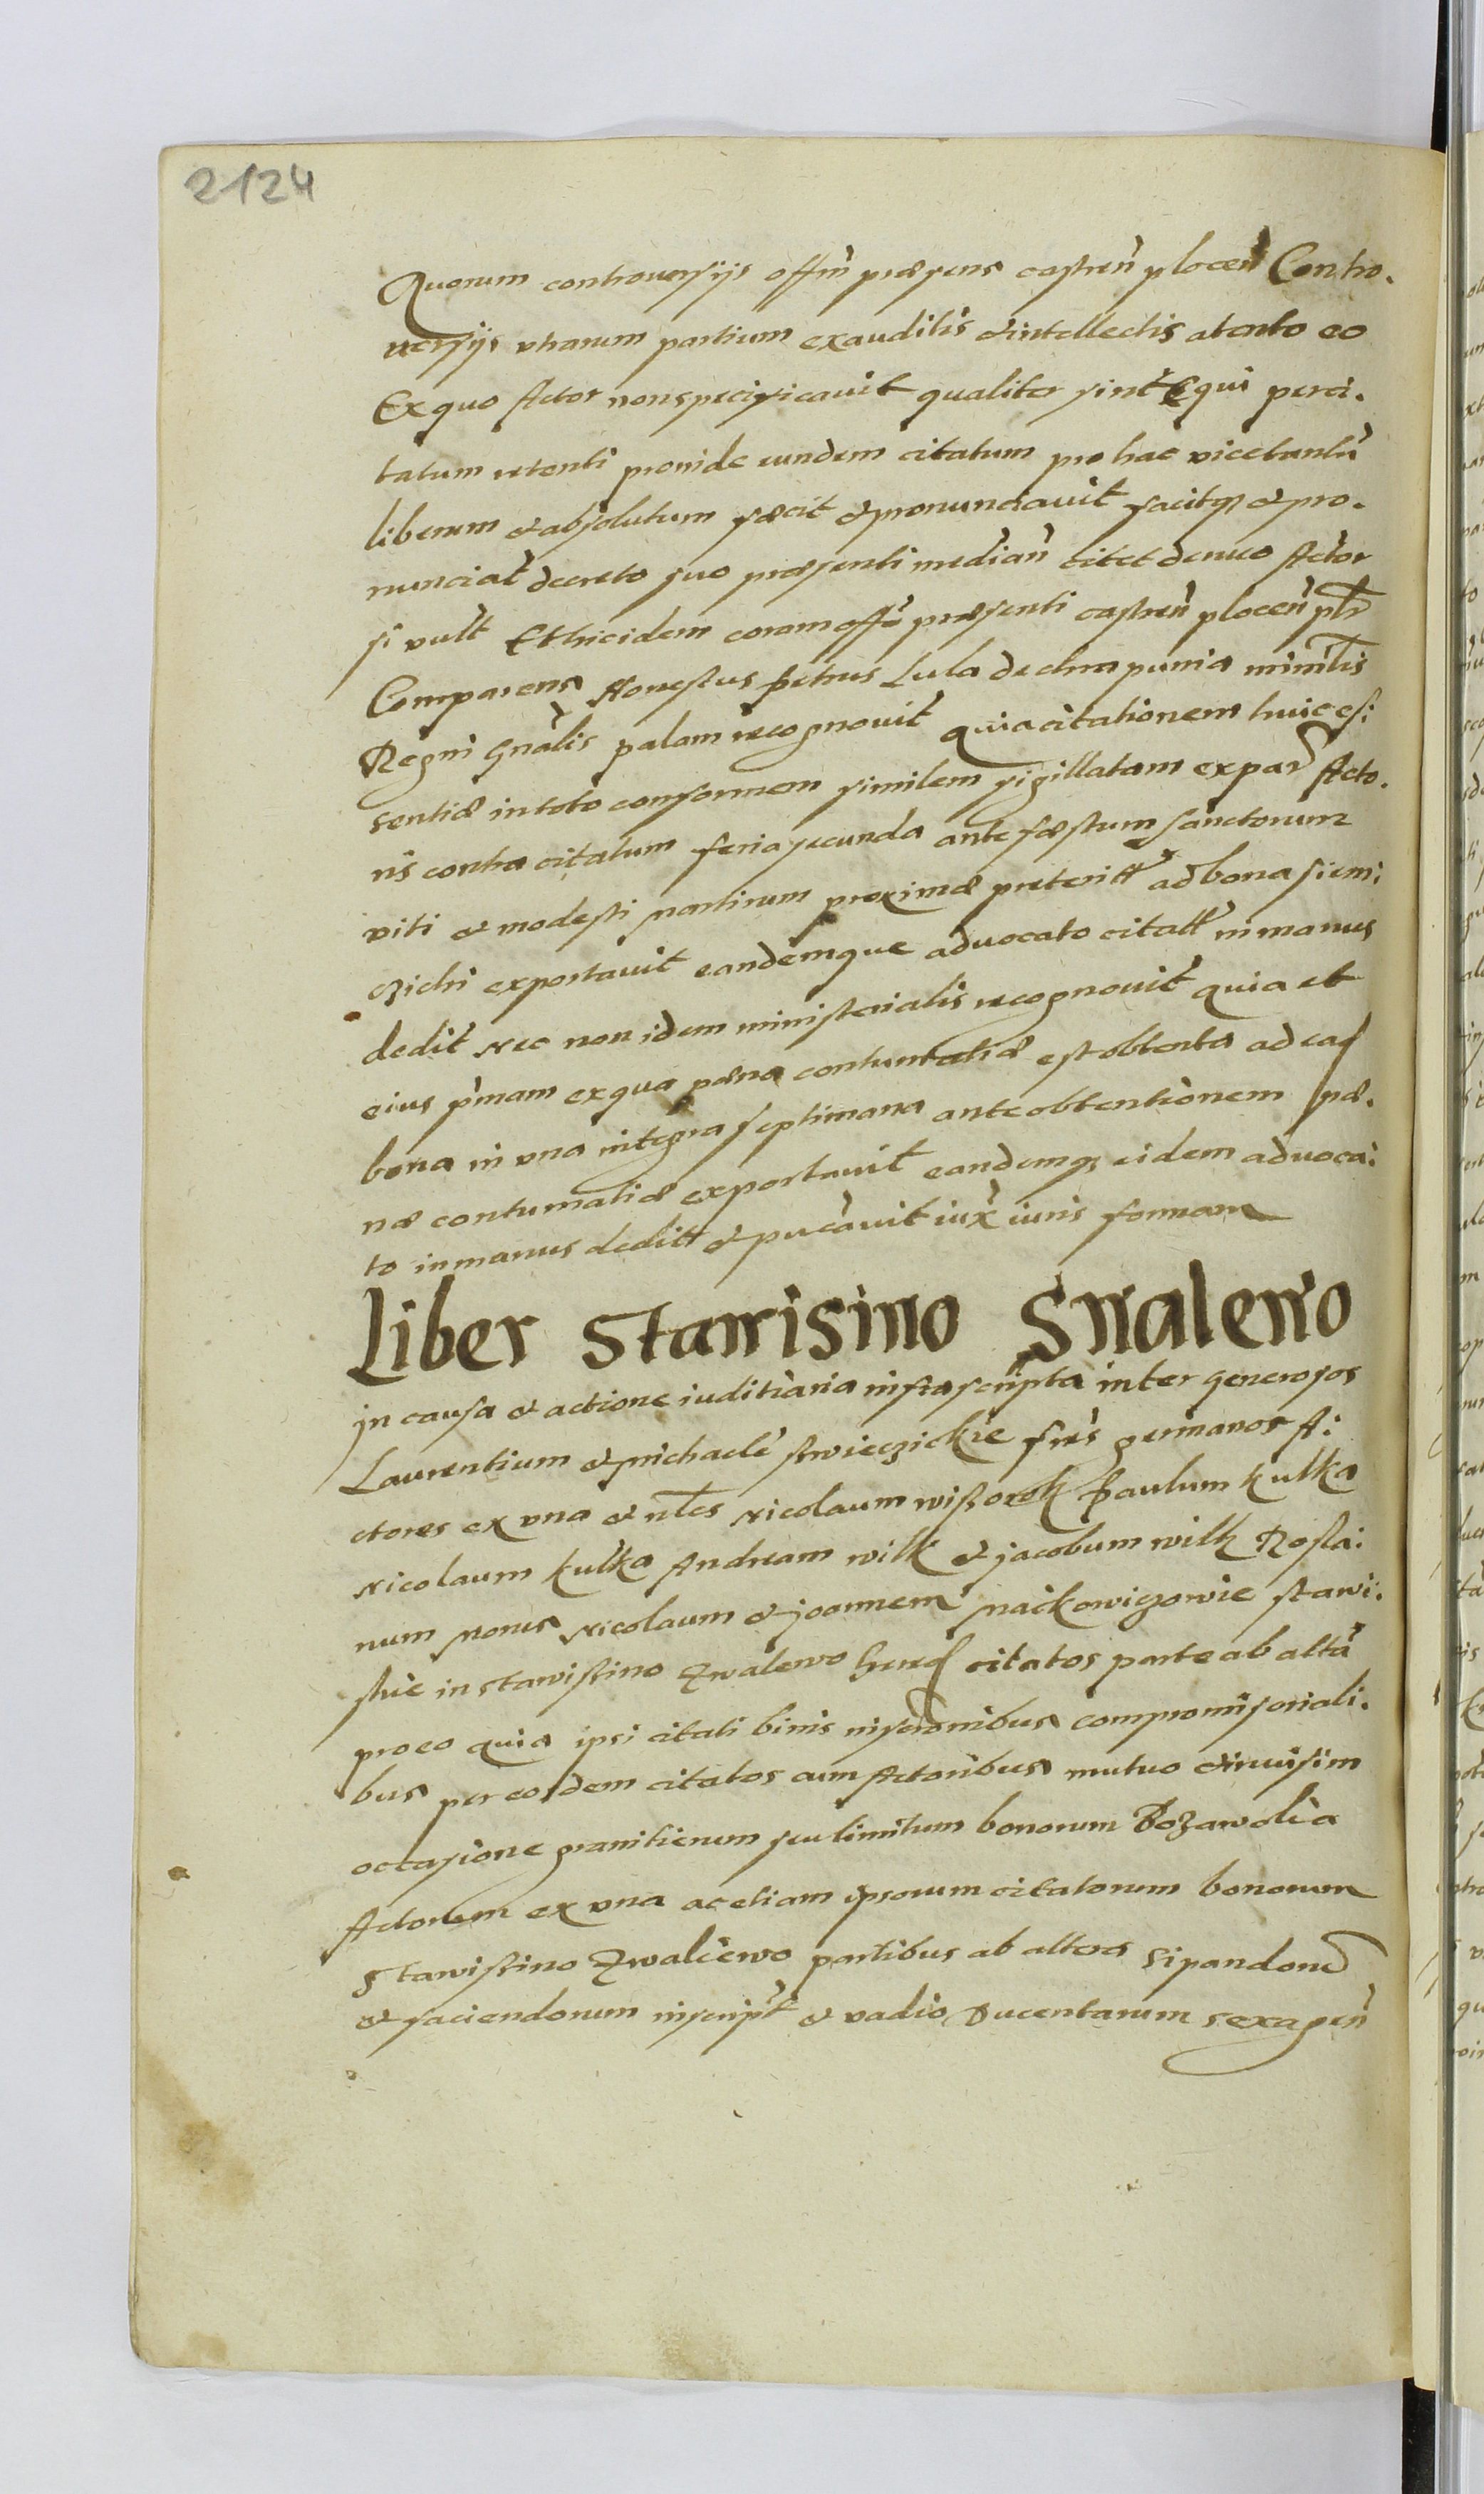 2124
Quorum controversijs offm praesens castren plocen Contro.
uersijs vtrarum partium exauditis & intellectis atento eo
Ex quo Actor non specificauit qualiter sint Equi per ci.
tatum retenti proinde eundem citatum pro hac vice tantu
liberum & absolutum fecit & pronunciauit facitq & pro.
nunciat decreto suo praesenti median citet denuo Actor
si vult Et hic idem coram offo praesenti castren plocen plr
Comparens Honestus Petrus Lula de chrapunia minirlis
Regni Gnalis palam recognouit quia citationem huic ess:
sentiae in toto conformem similem sigillatam ex par Acto.
ris contra citatum feria secunda ante faestum sanctorum
viti & modesti martirum proximae preteritt ad bona siem:
czichi exportauit eandemque aduocato citatt in manus
dedit Nec non idem ministerialis recognouit quia et
eius pmam ex qua paena contumatiae est obtenta ad eas
bona in vna integra septimana ante obtentionem pae.
nae contumatiae exportauit eandemq eidem aduoca:
to in manus deditt & pucauit iux iuris formam
Liber Stawisino Swalewo
In causa & actione iuditiaria infrascripta inter generosos
Laurentium & Michaele Swieczickie fres germanos A:
ctores ex vna & nles Nicolaum wissorek Paulum kulka
Nicolaum kulka Andream wilk & jacobum wilk Rosla:
num Morus Nicolaum & joannem Mackowiczowie stawi:
skie in stawissino Zwalewo hered citatos parte ab alta
pro eo quia ipsi citati binis inscronibus compromissoriali.
bus per eosdem citatos cum Actoribus mutuo & inuisim
occasione granitierum seu limitum bonorum Bozawolia
Actorum ex vna ac etiam ipsorum citatorum bonorum
Stawissino Zwaliewo partibus ab altera sipandoru
& faciendorum inscript & vadio Ducentarum sexagen